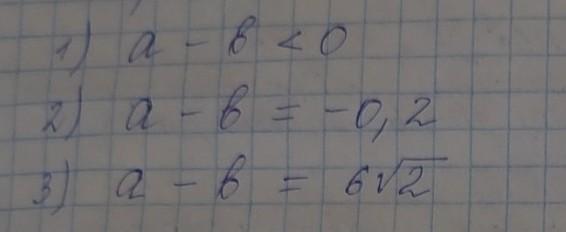 1) a - b < 0
2) a - b = -0,2
3) a - b = 6√2